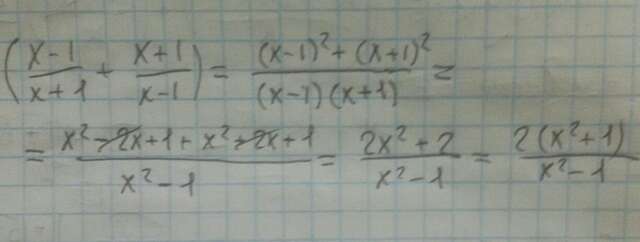 (x-1/x+1 + x+1/x-1) = (x-1)² + (x+1)²/(x-1)(x+1) =
= x² - 2x + 1 + x² + 2x + 1/x² - 1 = 2x² + 2/x² - 1 = 2(x² + 1)/x² - 1